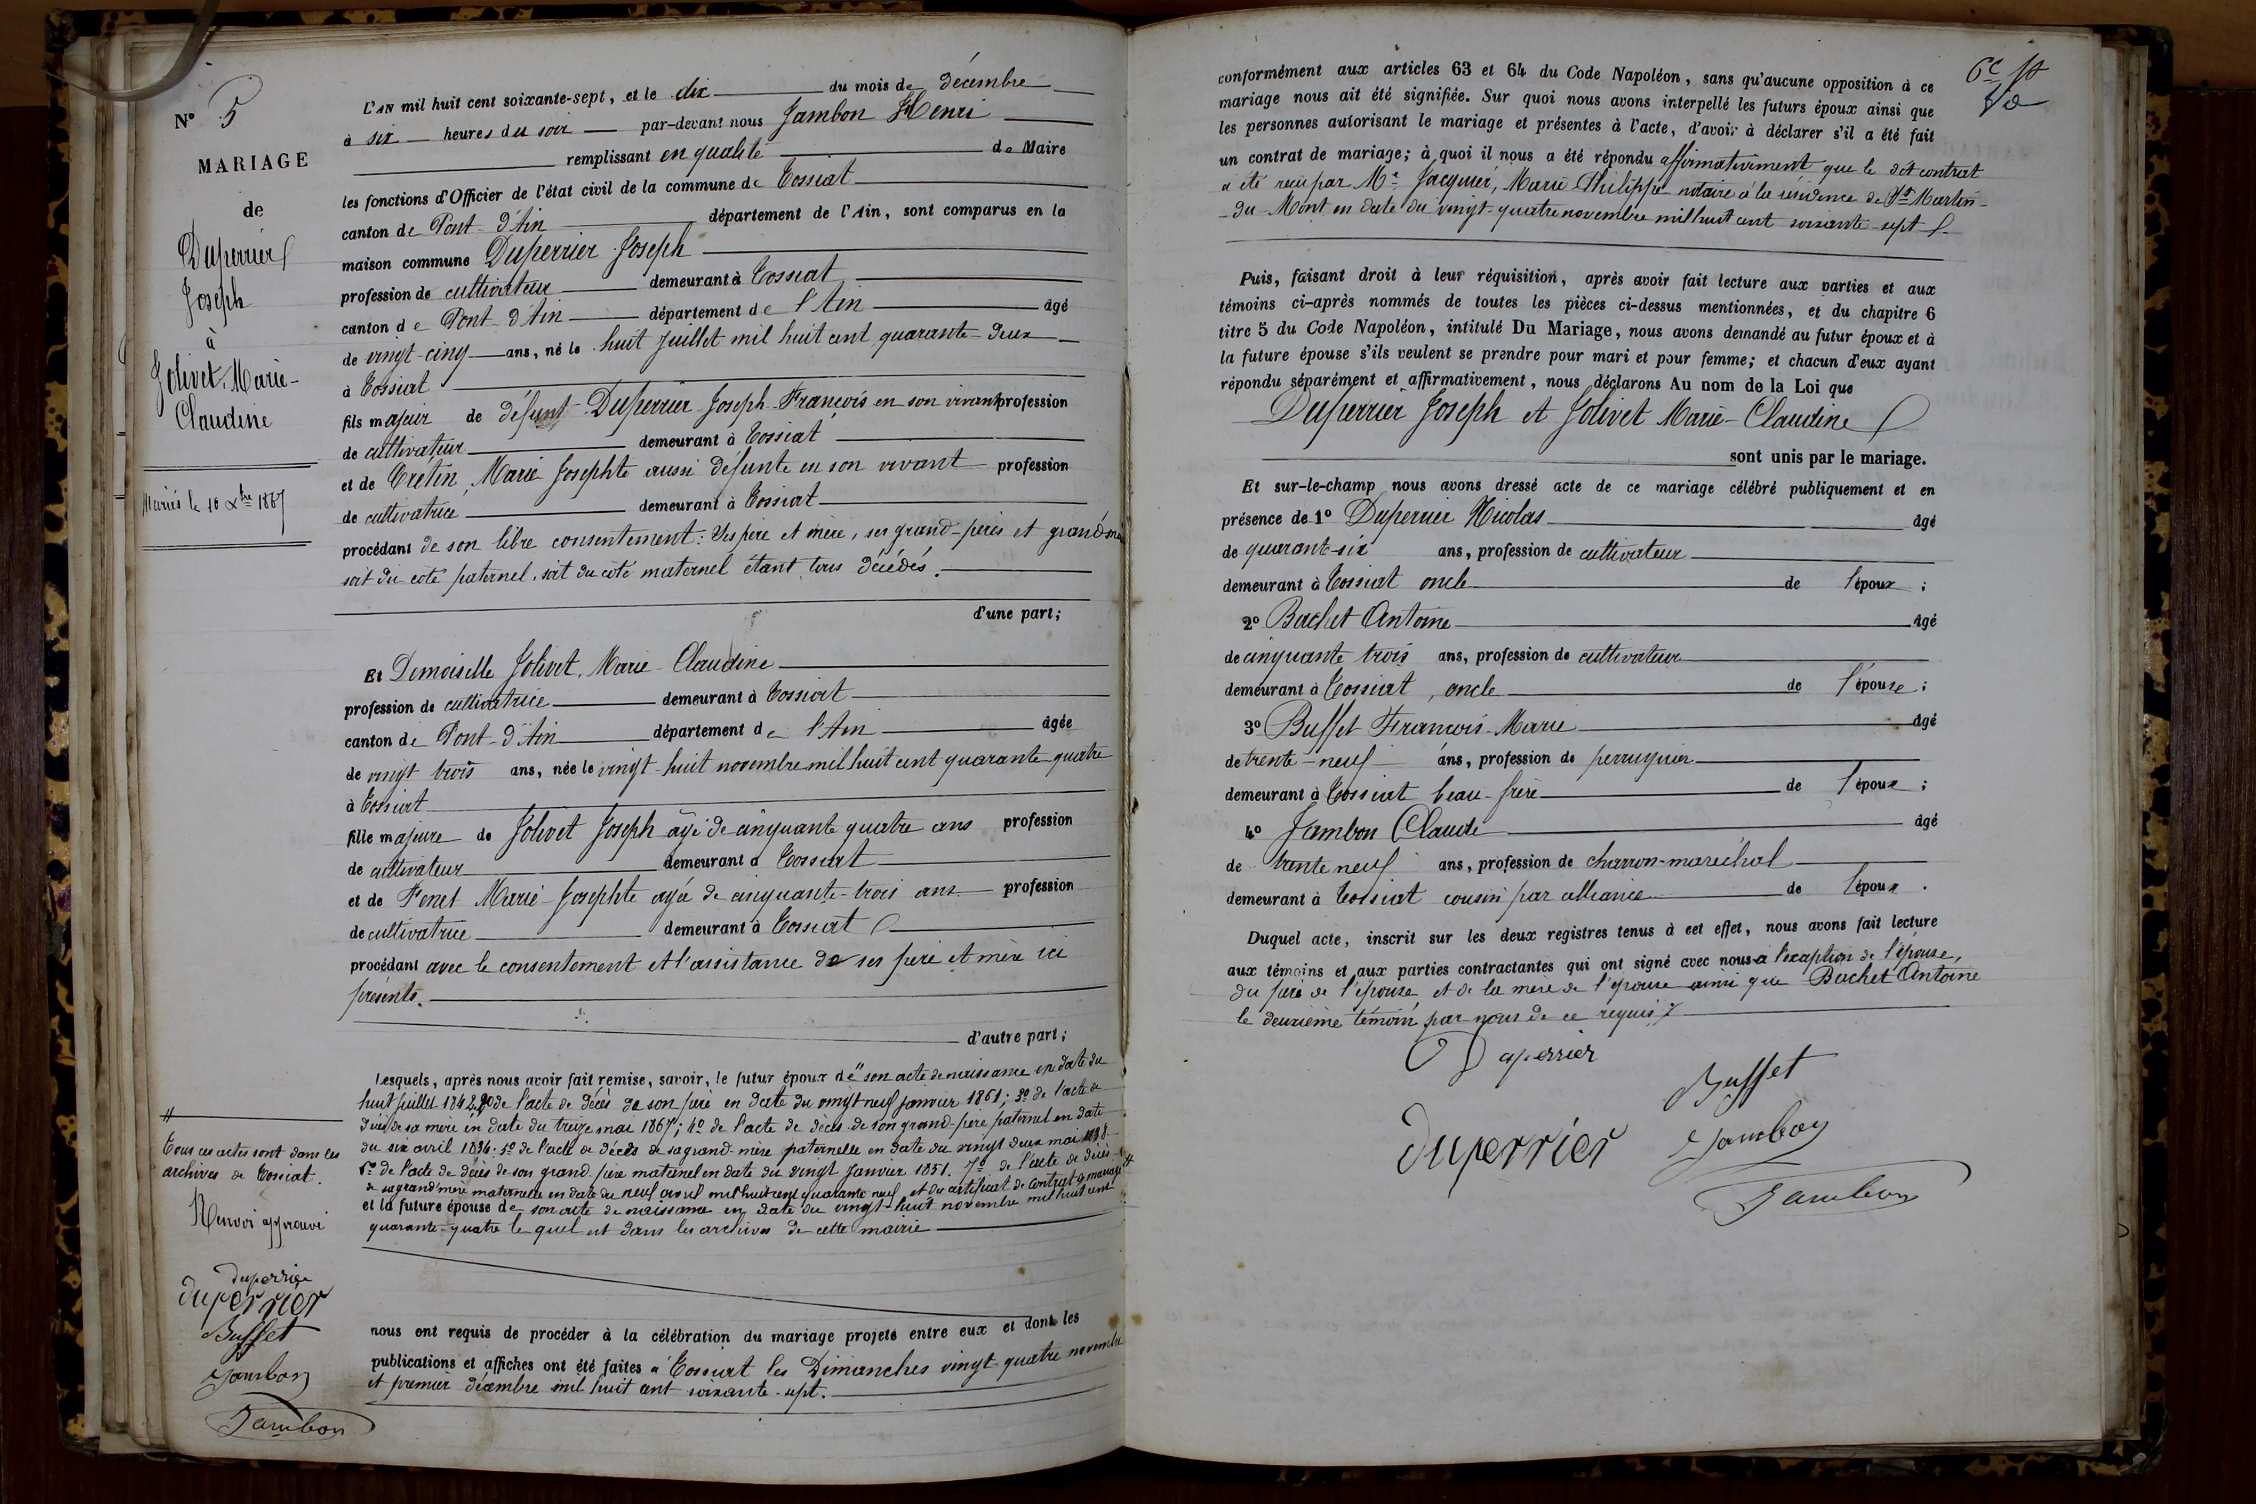 N° 5
MARIAGE
de
Duperrier
Joseph
à
Jolivet, Marie-
Claudine
Mariés le 10 Xbre 1867
L'AN mil huit cent soixante-sept, et le dix du mois de décembre
à six heures du soir par-devant nous Jambon Henri
remplissant en qualité de Maire
les fonctions d'Officier de l'état civil de la commune de Tossiat
canton de Pont-d'Ain département de l'Ain, sont comparus en la
maison commune Duperrier Joseph
profession de cultivateur demeurant à Tossiat
canton de Pont-d'Ain département de l'Ain âgé
de vingt-cinq ans, né le huit juillet mil huit cent quarante-deux
à Tossiat
fils majeur de défunt Duperrier Joseph-François en son vivant profession
de cultivateur demeurant à Tossiat
et de Cretin, Marie Josephte aussi défunte en son vivant profession
de cultivatrice demeurant à Tossiat
procédant de son libre consentement: Ses père et mère, ses grand-pères et grand'mè
soit du coté paternel, soit du coté maternel étant tous décédés.
d'une part;
Et Demoiselle Jolivet, Marie-Claudine
profession de cultivatrice demeurant à Tossiat
canton de Pont-d'Ain département de l'Ain âgée
de vingt trois ans, née le vingt-huit novembre mil huit cent quarante quatre
à Tossiat
fille majeure de Jolivet Joseph âgé de cinquante quatre ans profession
de cultivateur demeurant à Tossiat
et de Fenet Marie-Josephte agée de cinquante-trois ans profession
de cultivatrice demeurant à Tossiat
procédant avec le consentement et l'assistance de ses père et mère ici
présents.
d'autre part;
Lesquels, après nous avoir fait remise, savoir, le futur époux de 1° son acte de naissance en date du
huit juillet 1842, 2° de l'acte de décès de son père en date du vingt neuf janvier 1861; 3° de l'acte de
décès de sa mère en date du treize mai 1867; 4° de l'acte de décès de son grand-père paternel en date
du six avril 1834: 5° de l'acte de décès de sa grand-mère paternelle en date du vingt deux mai
6° de l'acte de décès de son grand père maternel en date du vingt janvier 1851. 7° de l'acte de décès
de sa grand'mère maternelle en date du neuf avril mil huit cent quarante neuf et du certificat de contrat de mariage #
et la future épouse de son acte de naissance en date du vingt-huit novembre mil huit cent
quarante-quatre le quel est dans les archives de cette mairie
#
Tous ces actes sont dans les
archives de Tossiat.
Renvoi approuvé
Duperrier
duperrier
Buffet
Jambon
Jambon
nous ont requis de procéder à la célébration du mariage projeté entre eux et dont les
publications et affiches ont été faites à Tossiat les Dimanches vingt-quatre novembre
et premier décembre mil huit cent soixante-sept.
6e
conformément aux articles 63 et 64 du Code Napoléon, sans qu'aucune opposition à ce
mariage nous ait été signifiée. Sur quoi nous avons interpellé les futurs époux ainsi que
les personnes autorisant le mariage et présentes à l'acte, d'avoir à déclarer s'il a été fait
un contrat de mariage; à quoi il nous a été répondu affirmativement que le dit contrat
a été reçu par Me Jacquier, Marie-Philippe notaire à la résidence de St Martin-
-du-Mont en date du vingt-quatre novembre mil huit cent soixante-sept
Puis, faisant droit à leur réquisition, après avoir fait lecture aux parties et aux
témoins ci-après nommés de toutes les pièces ci-dessus mentionnées, et du chapitre 6
titre 5 du Code Napoléon, intitulé Du Mariage, nous avons demandé au futur époux et à
la future épouse s'ils veulent se prendre pour mari et pour femme; et chacun d'eux ayant
répondu séparément et affirmativement, nous déclarons Au nom de la Loi que
Duperrier Joseph et Jolivet Marie-Claudine
sont unis par le mariage.
Et sur-le-champ nous avons dressé acte de ce mariage célébré publiquement et en
présence de 1° Duperrier Nicolas âgé
de quarante-six ans, profession de cultivateur
demeurant à Tossiat oncle de l'époux;
2° Bachet Antoine âgé
de cinquante trois ans, profession de cultivateur
demeurant à Tossiat, oncle de l'épouse;
3° Buffet François-Marie âgé
de trente-neuf ans, profession de perruquier
demeurant à Tossiat beau-frère de l'époux;
4° Jambon Claude âgé
de trente neuf ans, profession de charron-maréchal
demeurant à Tossiat cousin par alliance de l'époux.
Duquel acte, inscrit sur les deux registres tenus à cet effet, nous avons fait lecture
aux témoins et aux parties contractantes qui ont signé avec nous à l'exception de l'épouse,
du père de l'épouse et de la mère de l'épouse ainsi que Bachet Antoine
le deuxième témoin par nous de ce requis
Duperrier
Buffet
duperrier
Jambon
Jambon